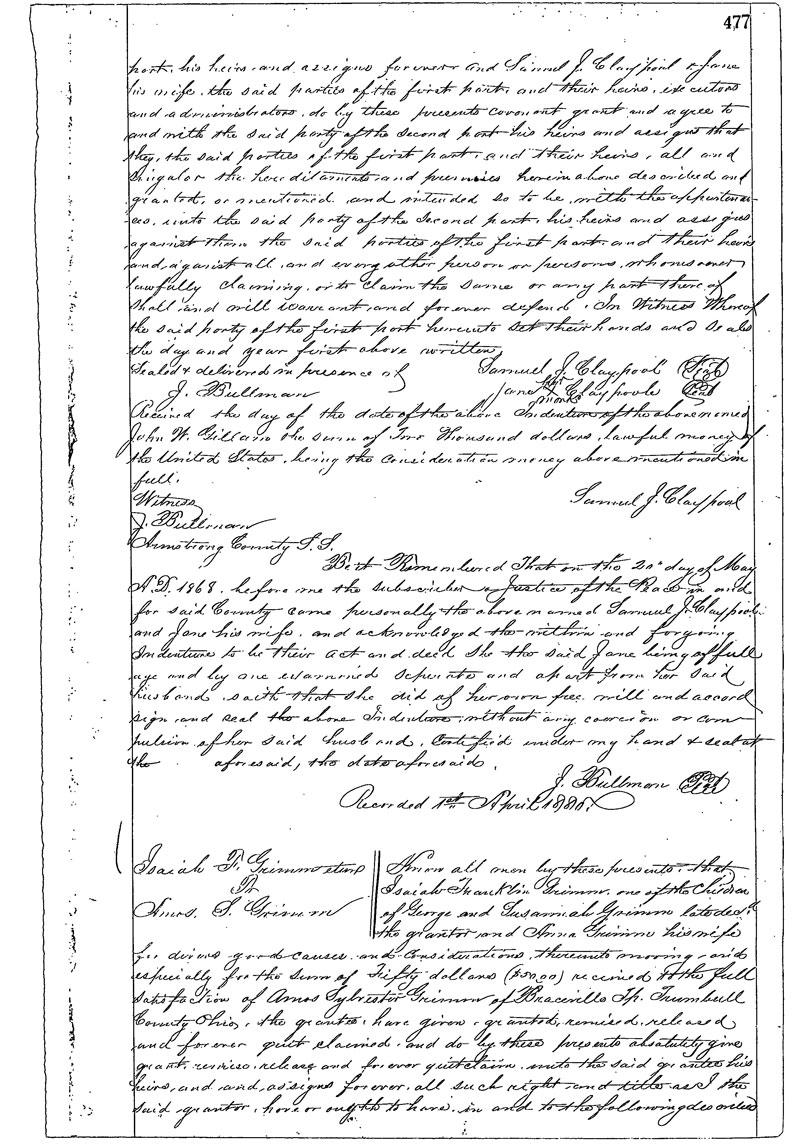 477
part, his heirs and assigns forever and Samuel J. Claypool & Jane
his wife, the said parties of the first part, and their heirs, executors
and administrators, do by these presents covenant grant and agree to
and with the said party of the second part his heirs and assigns that
they, the said parties of the first part, and their heirs, all and
singular the hereditaments and premises herein above described and
granted, or mentioned and intended so to be, with the appurtenan-
ces, unto the said party of the Second part, his heirs and assigns
against them the said parties of the first part, and their heirs
and, against all, and every other person or persons, whomsoever
lawfully claiming, or to claim the same or any part thereof
shall and will warrant and forever defend. In Witness Whereof
the said party of the first part hereunto set their hands and seals
the day and year first above written,
Sealed & delivered in presence of Samuel J. Claypool Seal
J. Bullman Jane her mark X Claypoole Seal
Received the day of the date of the above Indenture of the above named
John W. Gillam the sum of Two thousand dollars, lawful money of
the United States, being the consideration money above mentioned in
full.
Witness Samuel J. Claypool
J. Bullman
Armstrong County S.S.
Be it Remembered That on the 20th day of May
A.D. 1868. before me the subscriber a Justice of the Peace in and
for said County came personally the above named Samuel J. Claypool
and Jane his wife, and acknowledged the within and forgoing
Indenture to be their act and deed she the said Jane being of full
age and by me examined seperate and apart from her said
husband, saith that she did of her own free will and accord
sign and seal the above Indenture, without any coercion or com-
pulsion of her said husband. Certified under my hand & seal at
the aforesaid, the date aforesaid.
J. Bullman Seal
Recorded 1st April 1886.
Isaiah F. Grimm et ux
To
Amos. S. Grimm
Know all men by these presents, that
Isaiah Franklin Grimm, one of the Children
of George and Susannah Grimm late dec'd
the grantor and Anna Grimm his wife
for divers good causes and Considerations, thereunto moving and
especially for the sum of Fifty dollars ($50.00) received to the full
satisfaction of Amos Sylvester Grimm of Braceville Tp. Trumbull
County Ohio, the grantee, have given, granted, remised, released
and forever quit claimed, and do by these presents absolutely give
grant, remise, release and forever quit claim, unto the said grantee his
heirs, and and, assigns forever, all such right and title as I the
said grantor, have or ought to have, in and to the following described